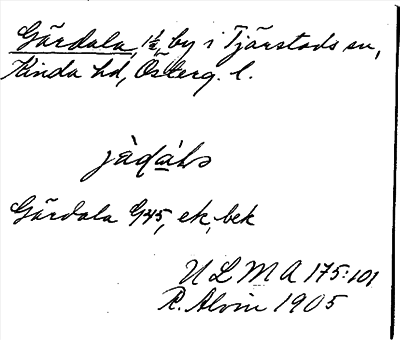 Gärdala, 1/2, by i Tjärstads sn,
Kinda hd, Österg. l.
Gärdala G45, ek, bek
ULMA 175:101
R. Alvin 1905